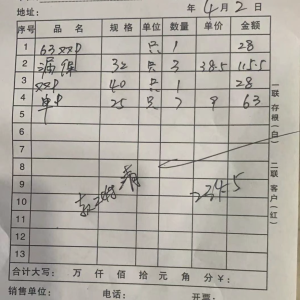 地址: 年 4 月 2 日
序号 品名 规格 单位 数量 单价 金额
1 63xxP 只 1 28
2 漏保 32 只 3 38.5 115.5
3 xxP 40 只 1 28
4 单P 25 只 7 9 63
5
6
7
8
9 234.5
10
11
12
13
合计大写: 万 仟 佰 拾 元 角 分 ¥:
销售单位: 电话: 开票:
一联 存根(白)
二联 客户(红)